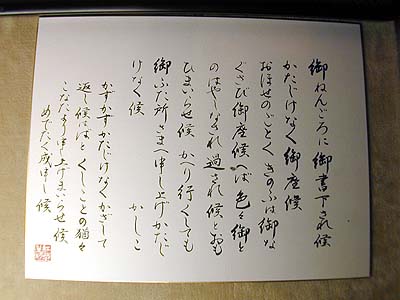 御ねんごろに御書下され候
かたじけなく御座候
おほせのごとくきのふは御な
ぐさび御座候へば色々御と
のはやしなされ過され候とおも
ひまいらせ候かり行くても
御ふた所さまへ申し上げかたじ
けなく候 かしこ
かすかすかたじけなくかざして
返し候へばとくしことの猶々
こなたより申し上げまいらせ候
めでたく成申し候